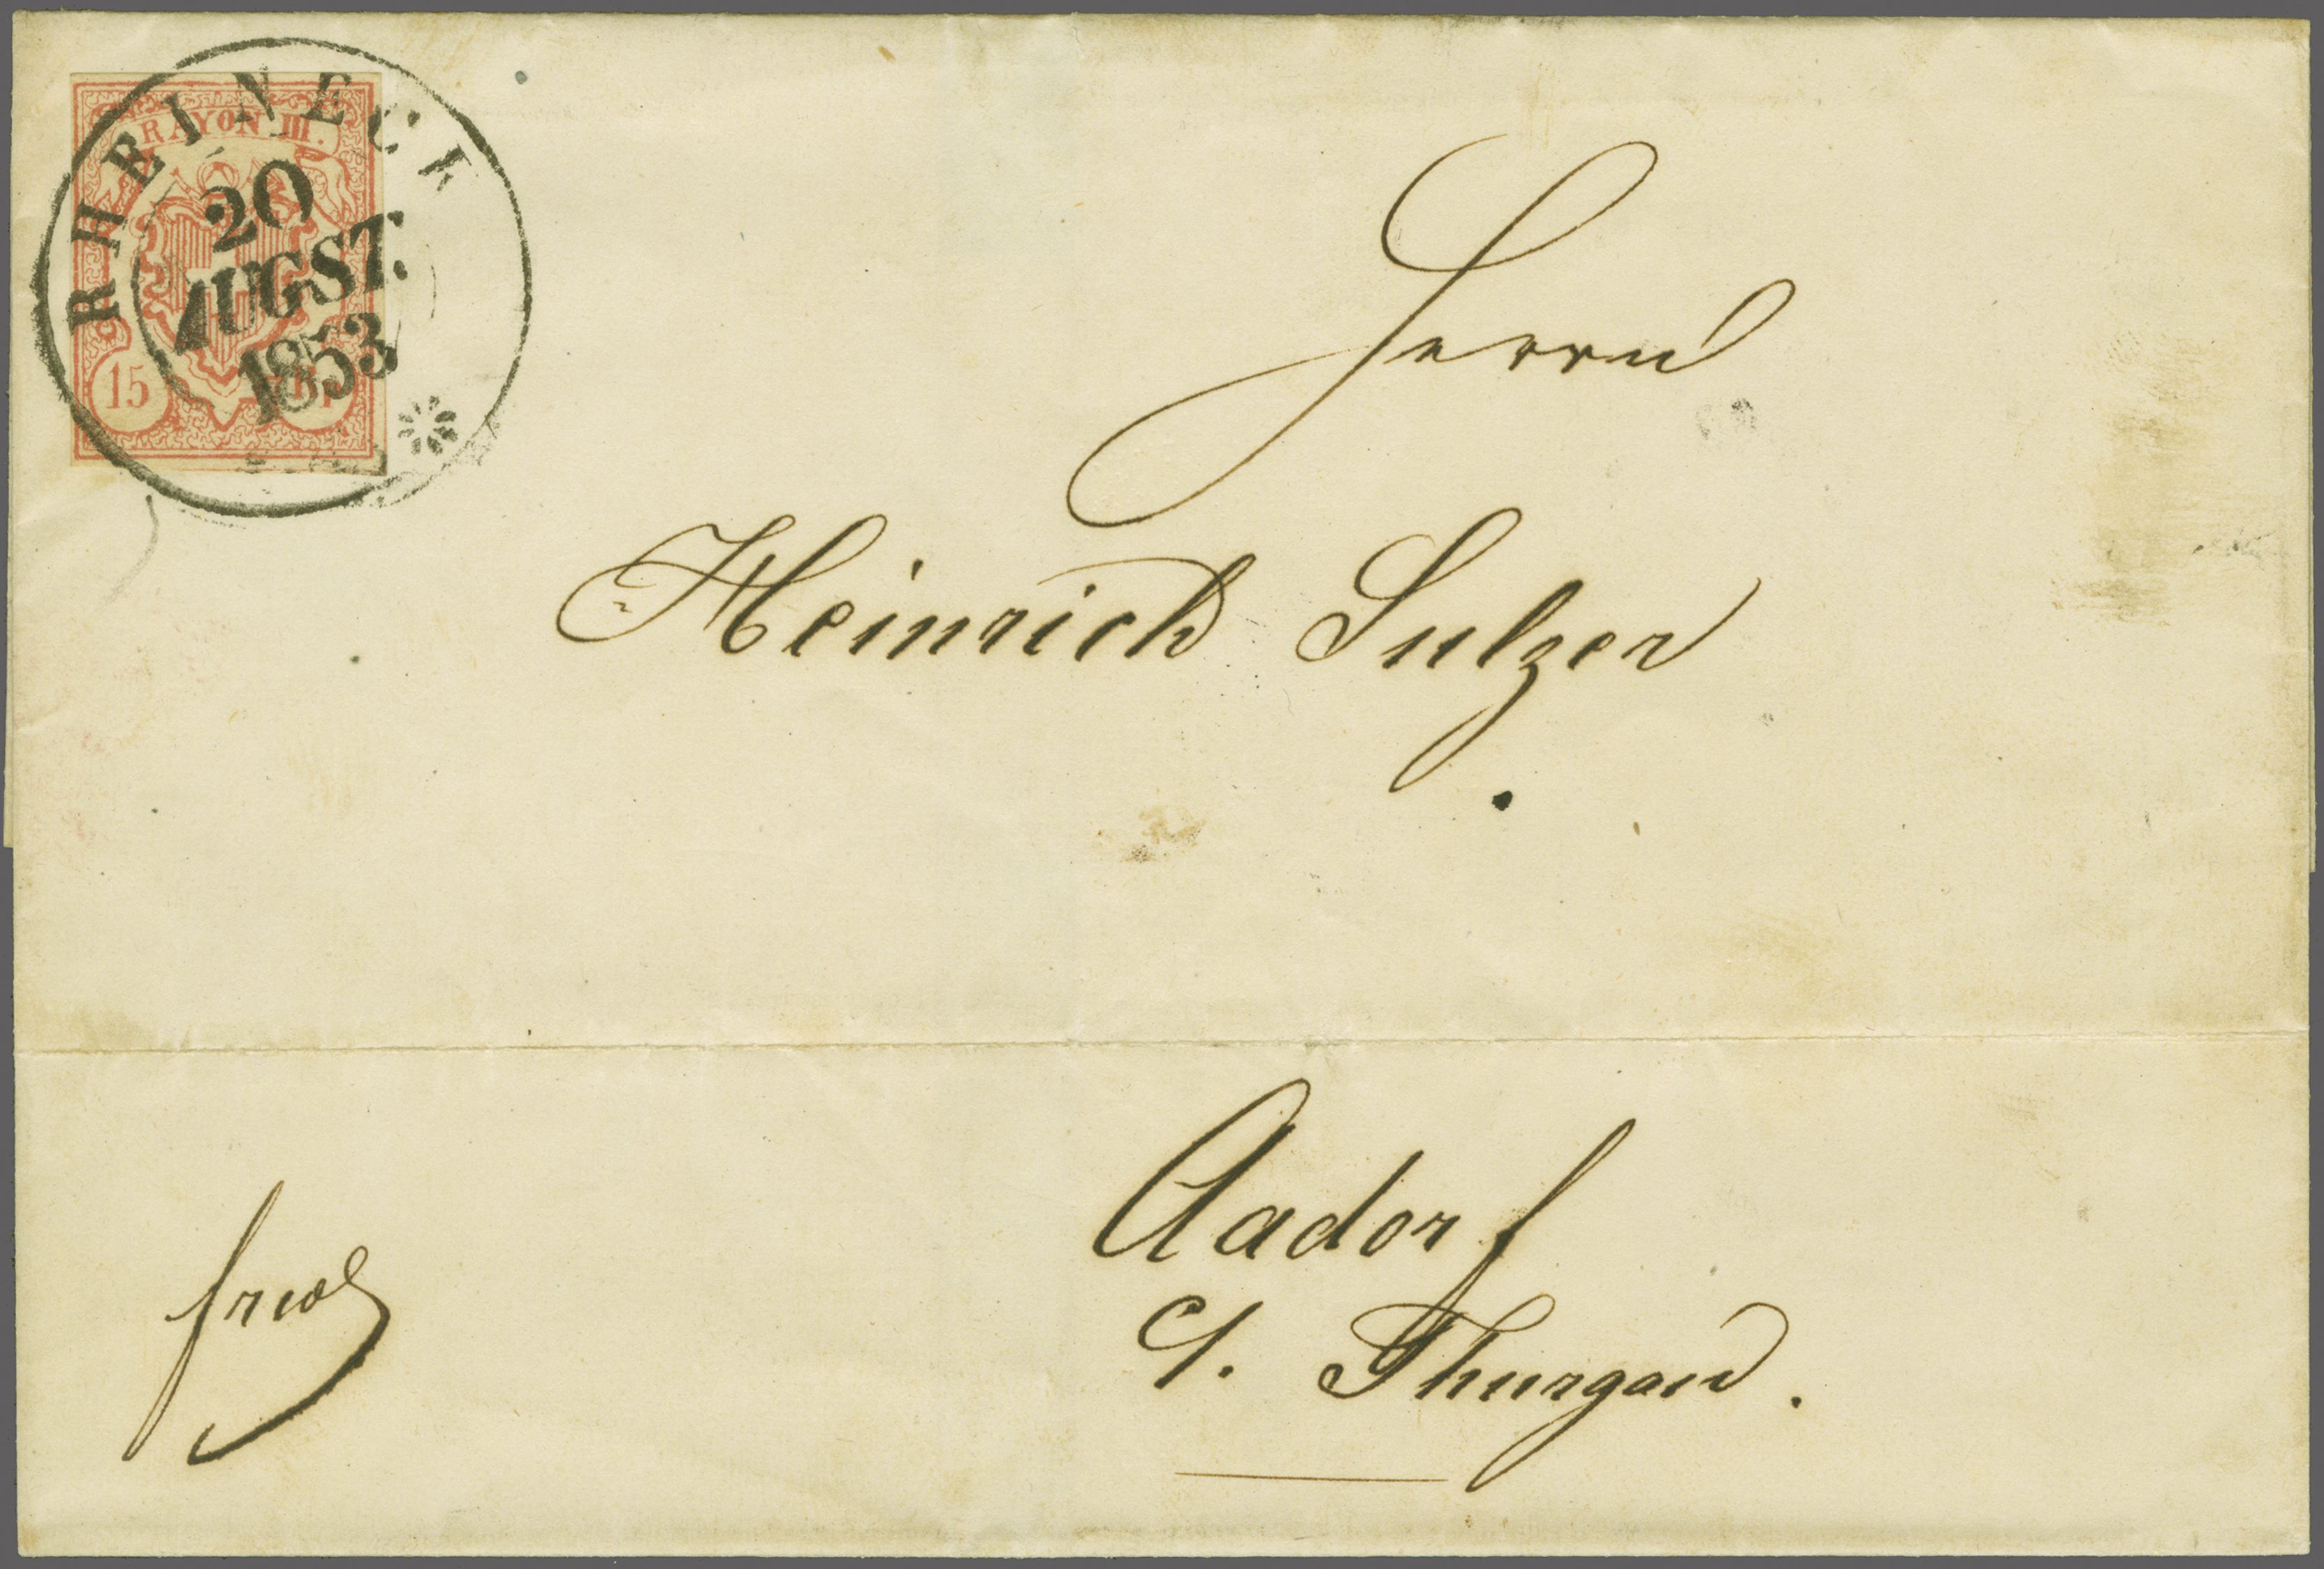 RHEINECK
RAYON III.
20
AUGST.
1853
15
Herrn
Heinrich Sulzer
Aadorf
C/. Thurgau.